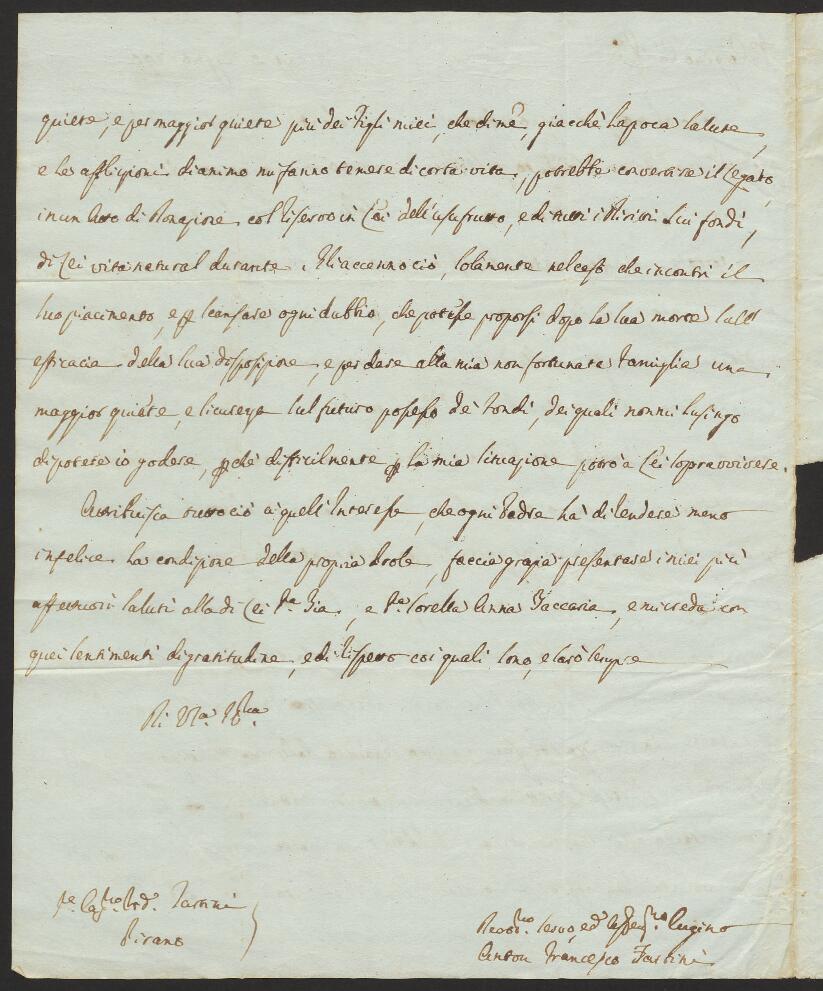 quiete, e per maggior quiete più dei Figli miei, che di me, giacchè la poca salute,
e le afflizioni di animo mi fanno temere di corta vita, potrebbe convertire il Legato,
in un Atto di Donazione col riservo in Lei dell'usufrutto, e di tutti i Diritti sui fondi,
di Lei vita natural durante. Gli accenno ciò, solamente nel caso che incontri il
suo piacimento, e p scansare ogni dubbio, che potesse proporsi dopo la sua morte sull'
efficacia della sua disposizione, e per dare alla mia non fortunata famiglia una
maggior quiete, e sicurezza sul futuro possesso de' fondi, dei quali non mi lusingo
di potere io godere, pchè difficilmente p la mia situazione potrò a Lei sopravvivere.
Attribuisca tutto ciò a quell'Interesse, che ogni Padre ha di rendere meno
infelice la condizione della propria Prole, faccia grazia presentare i miei più
affettuosi saluti alla di Lei Sa. Zia, e Sa. Sorella Anna Zaccaria, e mi creda con
quei sentimenti di gratitudine, e di rispetto coi quali sono, e sarò sempre
Di V. Sa.
Tartini
Pirano
Servo, ed Cugino
Anton Francesco Tartini